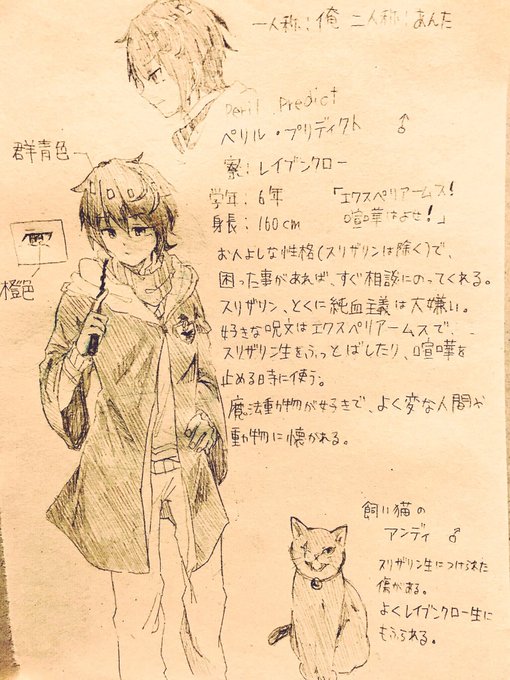 一人称：俺 二人称：あんた
Peril Predict
ペリル・プリディクト ♂
群青色
寮：レイブンクロー
学年：6年
身長：160cm
「エクスペリアームス！
喧華はよせ！」
橙色
お人よしな性格(スリザリンは除く)で、
困った事があれば、すぐ相談にのってくれる。
スリザリン、とくに純血主義は大嫌い。
好きな呪文はエクスペリアームスで、
スリザリン生をふっとばしたり、喧嘩を
止める時に使う。
魔法動物が好きで、よく変な人間や
動物に懐かれる。
飼い猫の
アンディ ♂
スリザリン生につけられた
傷がある。
よくレイブンクロー生に
もふられる。